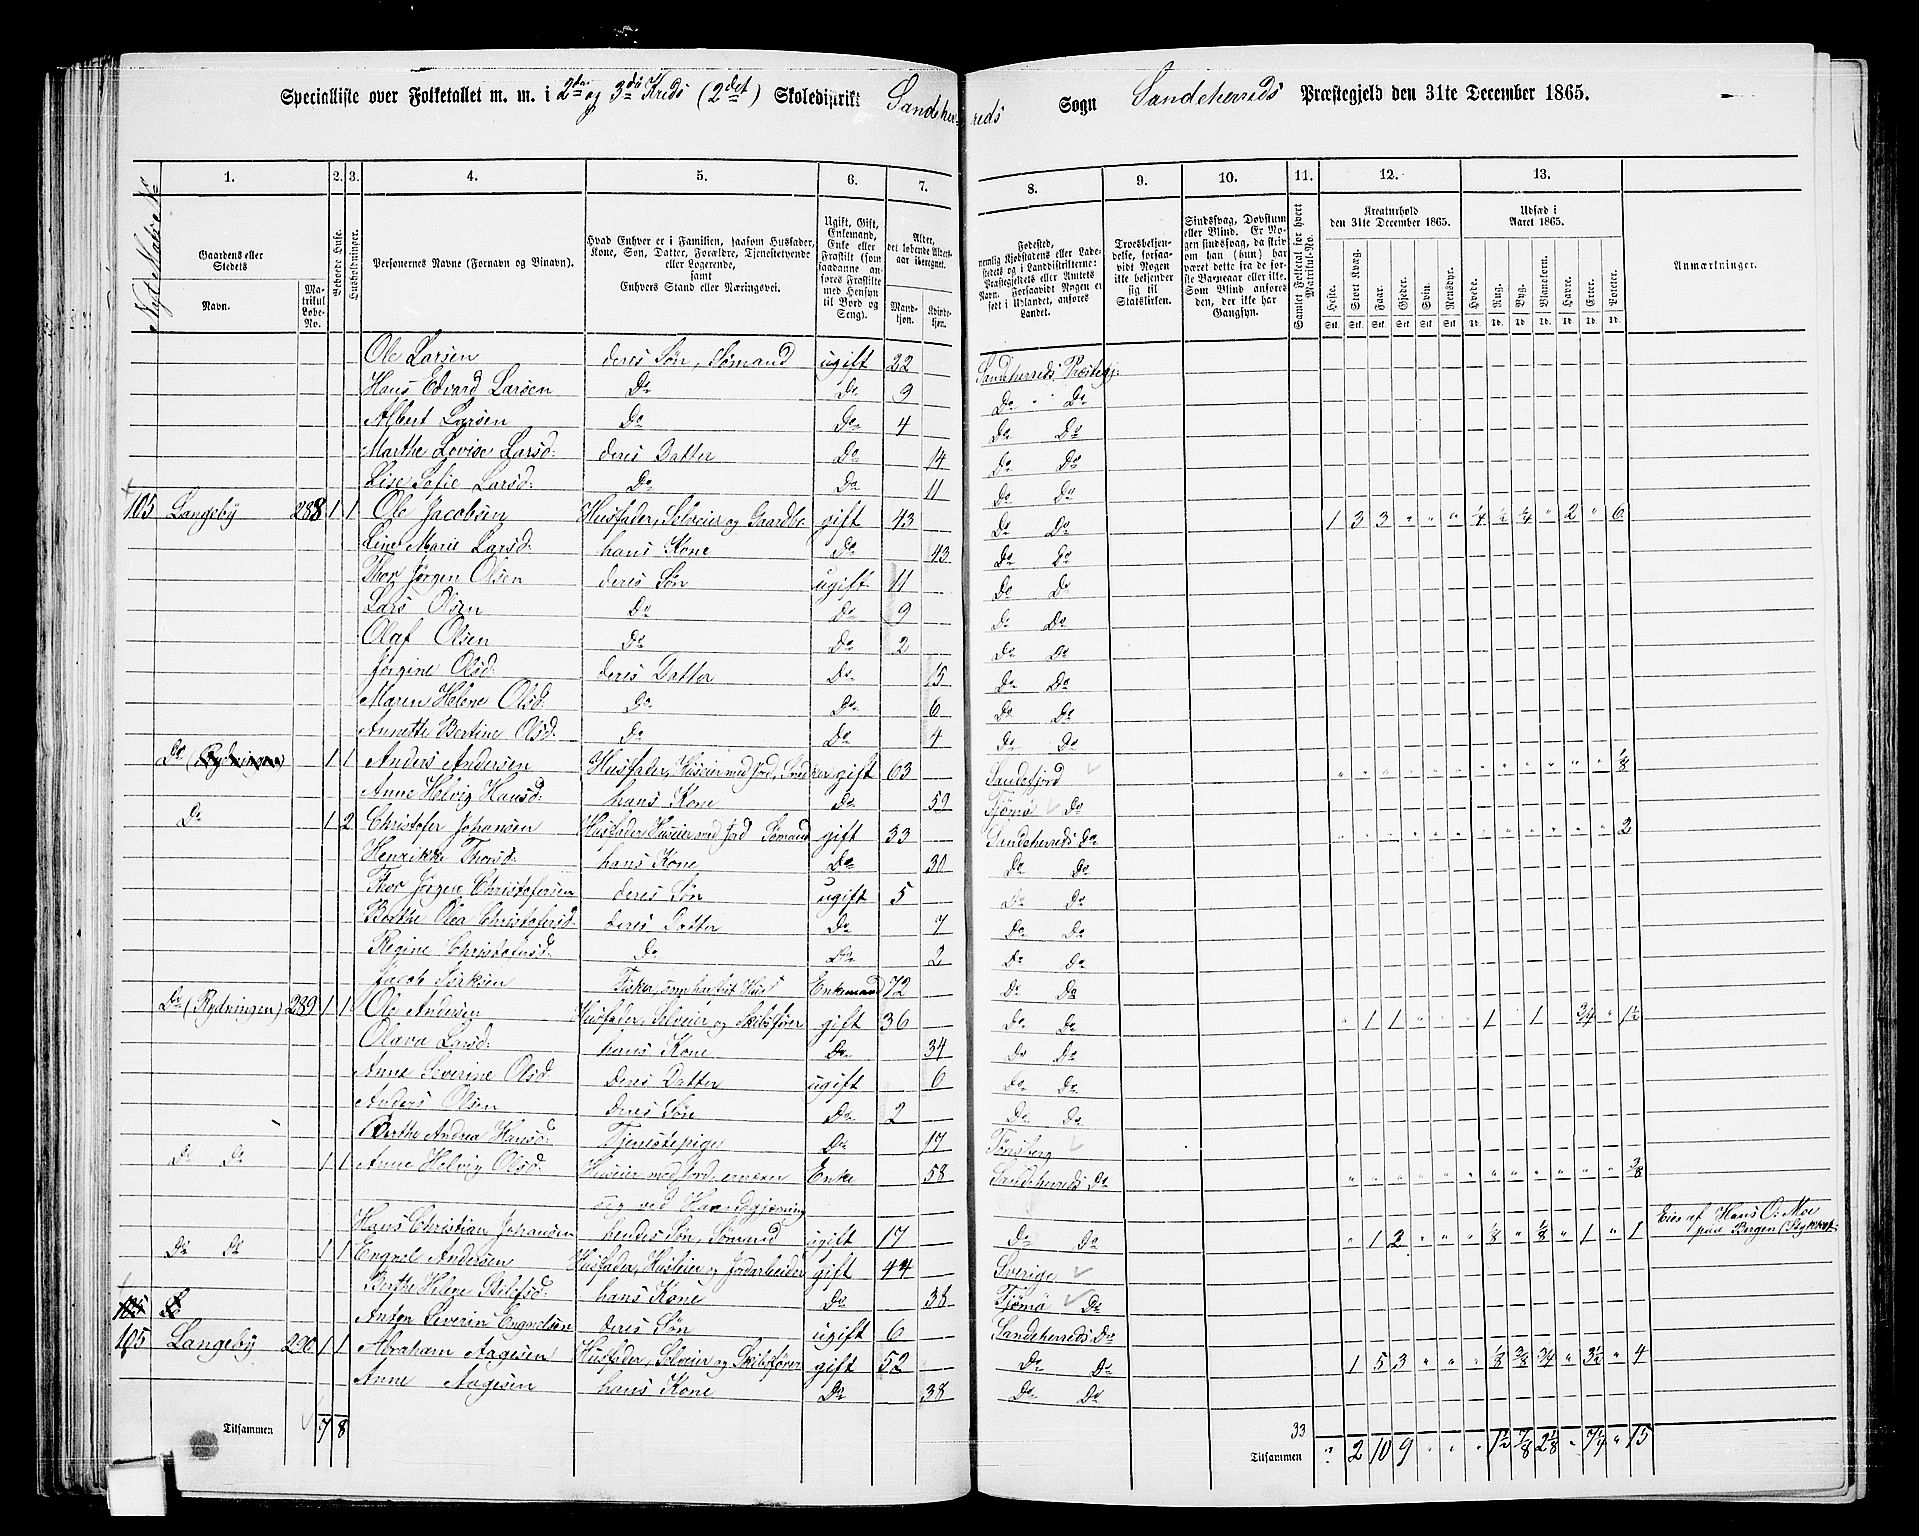 Specialliste over Folketallet m. m. i 2de og 3die Kreds (2det) Skoledistrikt Sandeherreds Sogn Sandeherreds Præstegjeld den 31te December 1865.
1. 2. 3. 4. 5. 6. 7. 8. 9. 10. 11. 12. 13.
Nyt Matr. No
Gaardens eller Stedets
Navn.
Matrikul Løbe-No.
Bebøede Huse.
Husholdninger.
Personernes Navne (Fornavn og Tilnavn).
Hvad Enhver er i Familien, saasom Husfader, Kone, Søn, Datter, Forældre, Tjenestetyende eller Logerende, samt Enhvers Stand eller Næringsvei.
Ugift, Gift, Enkemand, Enke eller Fraskilt (som saadanne anføres Fraskilte med Hensyn til Bord og Seng).
Alder, det løbende Aldersaar iberegnet.
Mandkjøn. Kvindekjøn.
Fødested, nemlig Kjøbstadens eller Ladestedets og i Landdistrikterne: Præstegjeldets eller Amtets Navn. Forsaavidt Nogen er født i Udlandet, anføres Landet.
Troesbekjendelse, forsaavidt Nogen ikke bekjender sig til Statskirken.
Sindssvag, Døvstum eller Blind. Er Nogen sindssvag, da skrives om han (hun) har været dette fra de første Barneaar eller ikke. Som Blind opføres den, der ikke har Gangsyn.
Samlet Folketal for hvert Matrikul-No.
Kreaturhold den 31te December 1865.
Heste. Stort Kvæg. Faar. Gjeder. Svin. Rensdyr.
Udsæd i Aaret 1865.
Hvede. Rug. Byg. Blandkorn. Havre. Erter. Poteter.
Anmærkninger.
Ole Larsen deres Søn, Sømand ugift 22 Sandeherreds Præstegj:
Hans Edvard Larsen Do Do 9 Do Do
Albert Larsen Do Do 4 Do Do
Marthe Lovise Larsd: deres Datter Do 14 Do Do
Lise Sofie Larsd: Do Do 11 Do Do
105 Langeby 288 1 1 Ole Jacobsen Husfader, Selveier og Gaardbr. gift 43 Do Do 1 3 3 " " " 1/4 1/2 3/4 " 2 " 6
Line Marie Larsd: hans Kone Do 43 Do Do
Thor Jørgen Olsen deres Søn ugift 11 Do Do
Lars Olsen Do Do 9 Do Do
Olaf Olsen Do Do 2 Do Do
Jørgine Olsd: deres Datter Do 15 Do Do
Maren Helene Olsd: Do Do 6 Do Do
Annette Bertine Olsd: Do Do 4 Do Do
Do (Rydningen) 1 1 Anders Andersen Husfader, Huseier med Jord, Snedker gift 63 Sandefjord " " " " " " " " " " " " 1/8
Anne Helvig Hansd: hans Kone Do 59 Tjømø Do
Do 1 2 Christofer Johansen Husfader, Huseier med Jord Sømand gift 33 Sandeherreds Do " " " " " " " " " " " " 2
Henrikke Thorsd: hans Kone Do 30 Do Do
Thor Jørgen Christofersen deres Søn ugift 5 Do Do
Berthe Olea Christofersd: deres Datter Do 7 Do Do
Regine Christofersd: Do Do 2 Do Do
Jacob Enkemand 72 Do Do
Do (Rydningen) 289 1 1 Ole Andersen Husfader, Selveier og Skibsfører gift 36 Do Do " 1 1 " " " 1 " 1 3/4 " 1 1/2
Olava Larsd: hans Kone Do 34 Do Do
Anne Severine Olsd. deres Datter ugift 6 Do Do
Anders Olsen deres Søn Do 2 Do Do
Berthe Andrea Hansd: Tjenestepige Do 17 Tønsberg
Do Do 1 1 Anne Helvig Olsd: Huseier med Jord ernærer Enke 58 Sandeherreds Do " " " " " " " " " " " " 3/8
sig ved Haandgjerning
Hans Christian Johansen hendes Søn, Sømand ugift 17 Do Do " 1 2 " " " " 1/8 " 1/8 " 1 " 1 Eies af Hans O. Moe
paa Bergen
Do Do 1 1 Engvol Andersen Husfader, Husleier og Jordarbeider gift 44 Sverige
Berthe Helene hans Kone Do 38 Tjømø Do
105 Do Anton Severin Engvolsen deres Søn ugift 6 Sandeherreds Do
105 Langeby 290 1 1 Abraham Aagesen Husfader, Selveier og Skibsfører gift 52 Do Do 1 5 3 " " " 1/8 3/8 3/4 " 3 1/2 " 4
Anne Aagesen hans Kone Do 38 Do Do
Tilsammen 7 8 33 Tilsammen " 2 10 9 " " " 1 1/2 7/8 2 1/8 " 7 1/4 " 15